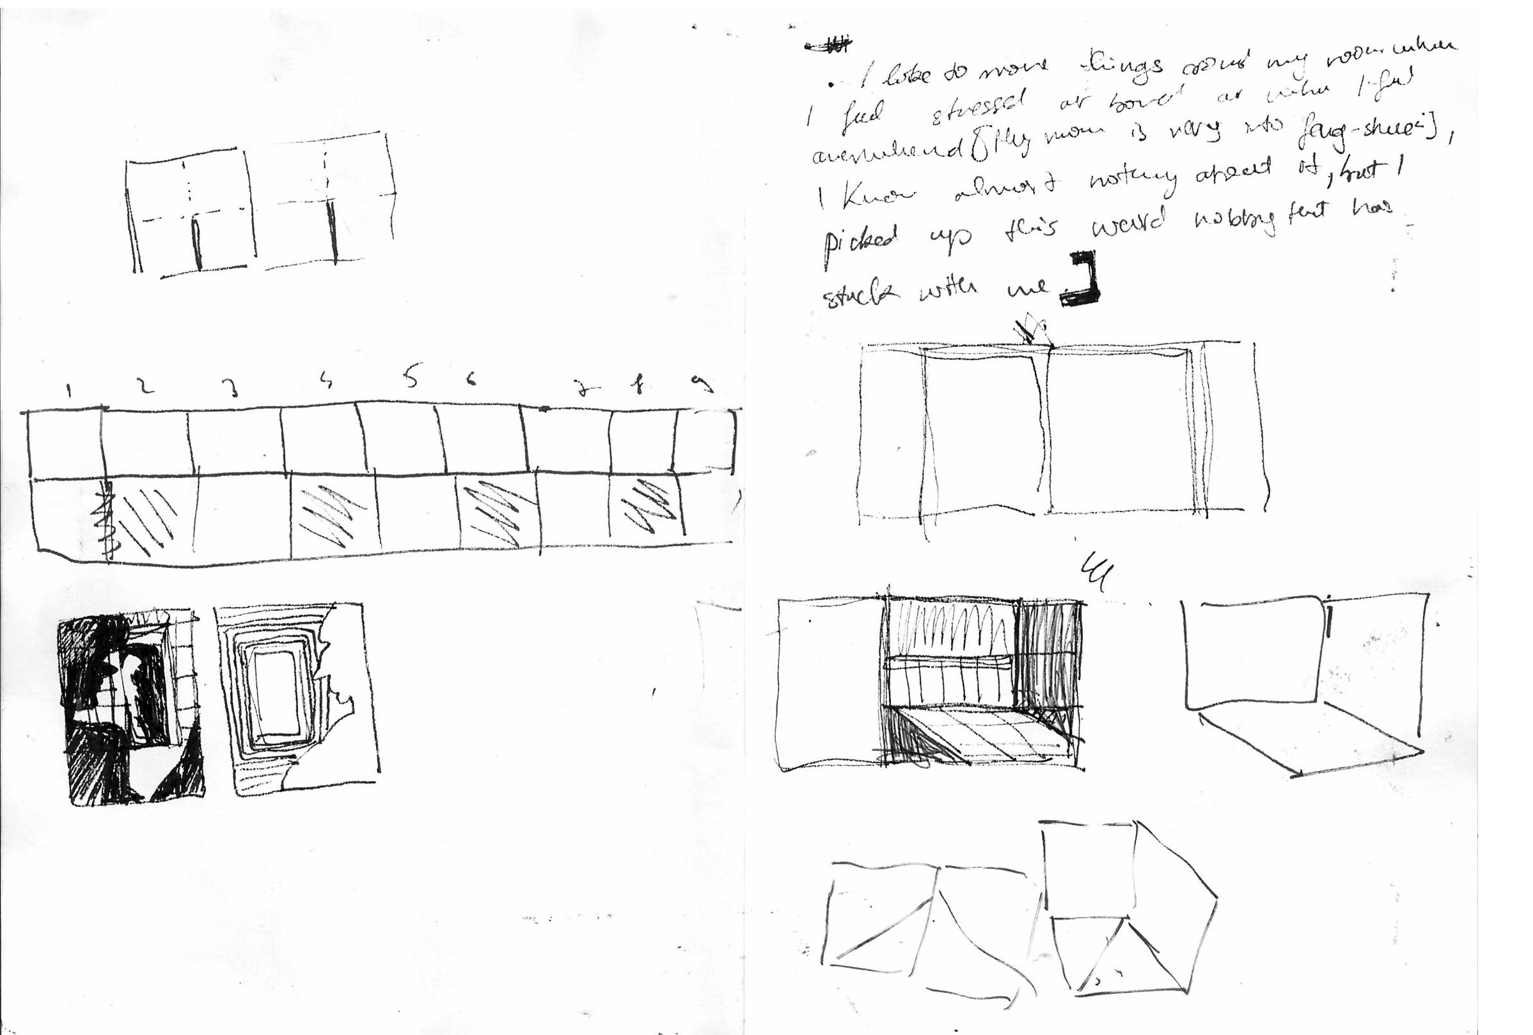 . I like to move things around my room when
I feel stressed or bored or when I feel
overwhelmed [My mom is very into feng-shuei],
I know almost nothing about it, but I
picked up this weird hobby that has
stuck with me.]
1 2 3 4 5 6 7 8 9